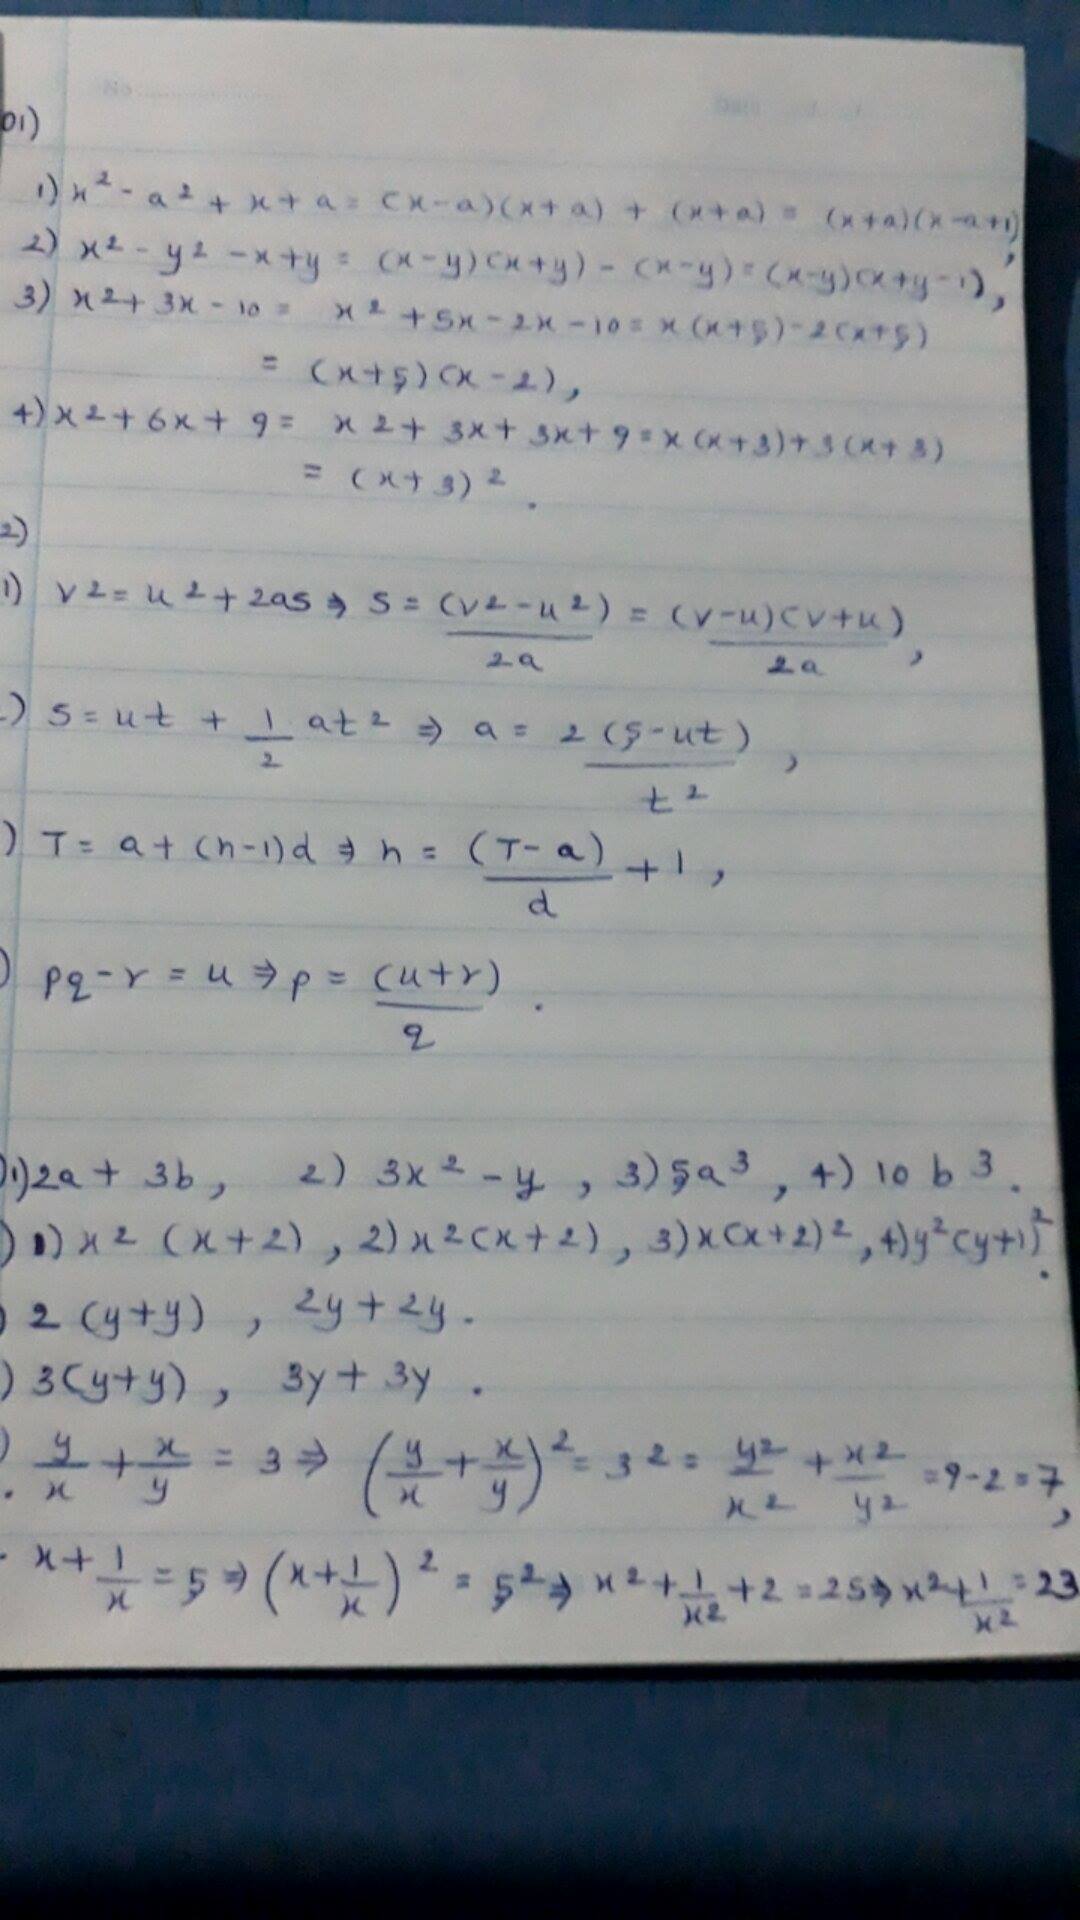 01)
1) x² - a² + x + a = (x-a)(x+a) + (x+a) = (x+a)(x-a+1),
2) x² - y² - x + y = (x-y)(x+y) - (x-y) = (x-y)(x+y-1),
3) x² + 3x - 10 = x² + 5x - 2x - 10 = x(x+5) - 2(x+5)
= (x+5)(x-2),
4) x² + 6x + 9 = x² + 3x + 3x + 9 = x(x+3) + 3(x+3)
= (x+3)².
2)
1) v² = u² + 2as ⇒ s = (v² - u²)/2a = (v-u)(v+u)/2a,
) s = ut + 1/2 at² ⇒ a = 2(s-ut)/t²,
) T = a + (n-1)d ⇒ n = (T-a)/d + 1,
) pq - r = u ⇒ p = (u+r)/q.
1) 2a + 3b, 2) 3x² - y, 3) 5a³, 4) 10b³.
) 1) x²(x+2), 2) x²(x+2), 3) x(x+2)², 4) y²(y+1)².
) 2(y+y), 2y + 2y.
) 3(y+y), 3y + 3y.
) y/x + x/y = 3 ⇒ (y/x + x/y)² = 3² = y²/x² + x²/y² = 9-2 = 7,
x + 1/x = 5 ⇒ (x + 1/x)² = 5² ⇒ x² + 1/x² + 2 = 25 ⇒ x² + 1/x² = 23